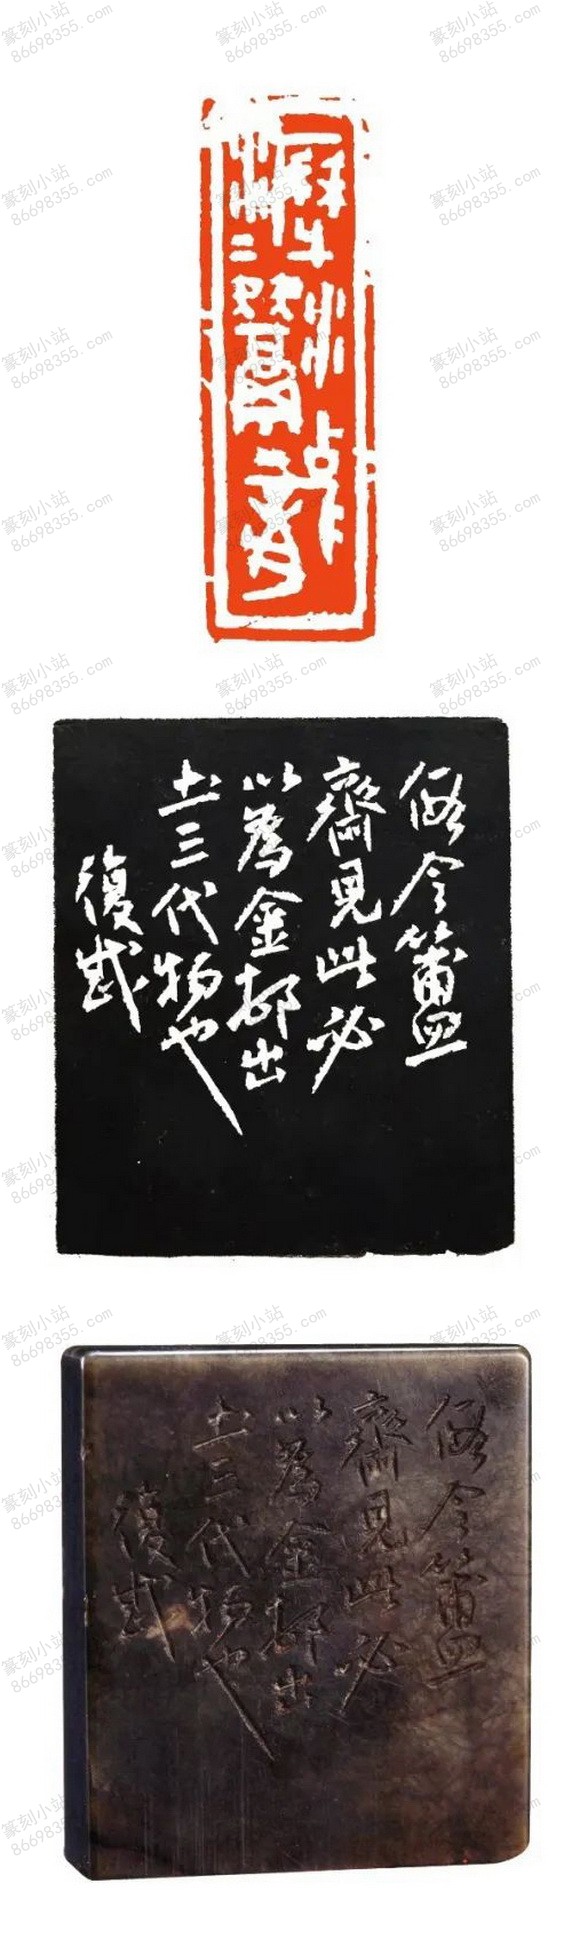 篆刻小站
86698355.com
假令簠
齋見此必
以為金都出
土三代物也
復戡
假令簠
齋見此必
以為金都出
土三代物也
復戡